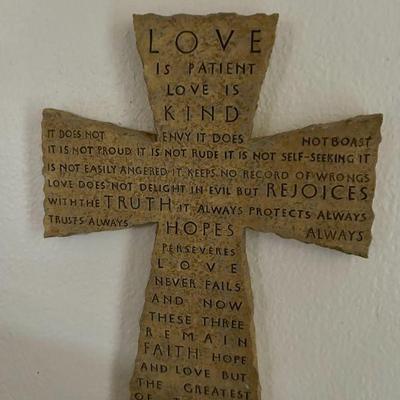 LOVE
IS PATIENT
LOVE IS
KIND
IT DOES NOT ENVY IT DOES NOT BOAST
IT IS NOT PROUD IT IS NOT RUDE IT IS NOT SELF-SEEKING IT
IS NOT EASILY ANGERED IT KEEPS NO RECORD OF WRONGS
LOVE DOES NOT DELIGHT IN EVIL BUT REJOICES
WITH THE TRUTH IT ALWAYS PROTECTS ALWAYS
TRUSTS ALWAYS HOPES ALWAYS
PERSEVERES
LOVE
NEVER FAILS
AND NOW
THESE THREE
REMAIN
FAITH HOPE
AND LOVE BUT
THE GREATEST
OF